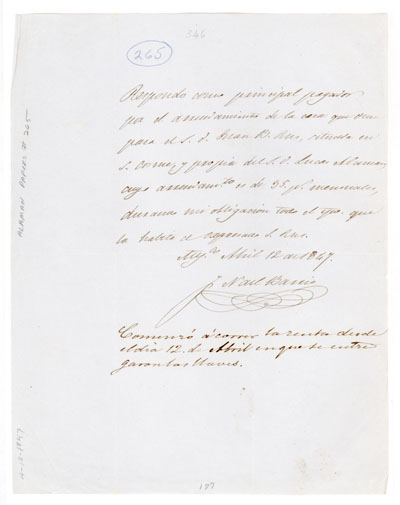 346
265
Respondo como principal pagador
pa el arrendamiento de la casa que ocu
para el S. D. Juan B. , situada en
S. Cosme, y propia del S. D. Lucas Alaman,
cuyo arrendamto es de 35 ps. mensuales,
durando mi obligacion todo el tpo. que
la habite el espresado S.
Mejco Abril 12 de 1847.
Comenzó á correr la renta desde
el dia 12. de Abril en que se entre
garon las llaves.
187
ALAMAN PAPERS # 265
4-12-1847